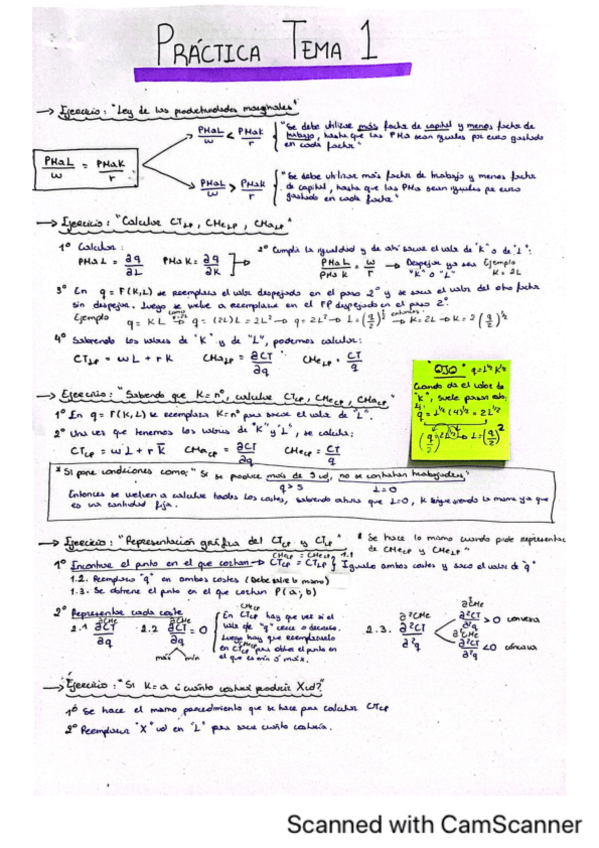 PRÁCTICA TEMA 1
→ Ejercicio: "Ley de las productividades marginales"
PMaL/w = PMaK/r
PMaL/w < PMaK/r
"Se debe utilizar más factor de capital y menos factor de trabajo, hasta que las PMa sean iguales por euro gastado en cada factor"
PMaL/w > PMaK/r
"Se debe utilizar más factor de trabajo y menos factor de capital, hasta que las PMa sean iguales por euro gastado en cada factor"
→ Ejercicio: "Calcular CTLP, CMeLP, CMaLP"
1º Calcular:
PMaL = ∂q/∂L PMaK = ∂q/∂K
2º Cumplir la igualdad y de ahí sacar el valor de "K" o de "L":
PMaL/PMaK = w/r → Despejar ya sea "K" o "L" Ejemplo K = 2L
3º En q = F(K,L) se reemplaza el valor despejado en el paso 2º y se saca el valor del otro factor
sin despejar. Luego se vuelve a reemplazar en el FP despejado en el paso 2º.
Ejemplo q = KL → q = (2L)L = 2L² → q = 2L² → L = (q/2)^1/2 entonces → K = 2L → K = 2(q/2)^1/2
4º Sabiendo los valores de "K" y de "L", podemos calcular:
CTLP = wL + rK CMaLP = ∂CT/∂q CMeLP = CT/q
"OJO" q = L^1/2 K^1/2
Cuando da el valor de
"K", suele pasar esto:
q = L^1/2 (4)^1/2 = 2L^1/2
(q/2)² = L^1/2 → L = (q/2)²
→ Ejercicio: "Sabiendo que K = nº, calcular CTCP, CMeCP, CMaCP"
1º En q = F(K,L) se reemplaza K = nº para sacar el valor de "L".
2º Una vez que tenemos los valores de "K" y "L", se calcula:
CTCP = wL + rK̄ CMaCP = ∂CT/∂q CMeCP = CT/q
* Si pone condiciones como: "Si se produce más de 5 ud, no se contratan trabajadores"
q > 5 L = 0
Entonces se vuelven a calcular todos los costes, sabiendo ahora que L=0, K sigue siendo la misma ya que
es una cantidad fija.
→ Ejercicio: "Representación gráfica del CTCP y CTLP"
* Se hace lo mismo cuando pide representar
de CMeCP y CMeLP"
1º Encontrar el punto en el que cortan → CTCP = CTLP } Igualo ambos costes y saco el valor de "q"
CMeCP = CMeLP 1.1
1.2. Reemplazo "q" en ambos costes (Debe salir lo mismo)
1.3. Se obtiene el punto en el que cortan P(a;b)
2º Representar cada coste
2.1 ∂CT/∂q ∂CMe
2.2 ∂CT/∂q = 0 ∂CMe
máx mín
CMeCP
En CTCP hay que ver si el
valor de "q" crece o decrece.
Luego hay que reemplazarlo
en CTCP para obtener el punto en
el que es mín o máx.
2.3. ∂²CT/∂²q ∂²CMe
∂²CT/∂²q > 0 convexa
∂²CT/∂²q < 0 cóncava
→ Ejercicio: "Si K = a ¿cuánto costará producir X ud?"
1º Se hace el mismo procedimiento que se hace para calcular CTCP
2º Reemplazar "X" ud en "L" para sacar cuánto costaría.
Scanned with CamScanner